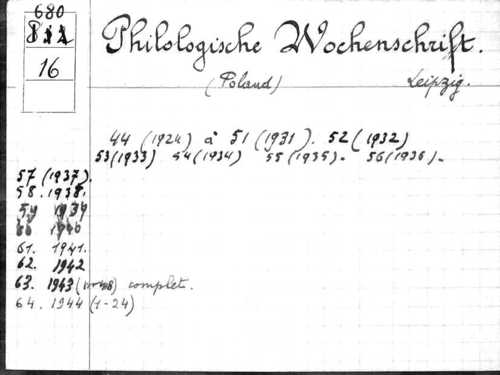 680
16
Philologische Wochenschrift.
(Poland) Leipzig.
44 (1924) à 51 (1931). 52 (1932)
53 (1933) 54 (1934) 55 (1935). 56 (1936).
57 (1937).
58. 1938.
59 1939
60 1940
61. 1941.
62. 1942
63. 1943 complet.
64. 1944 (1-24)